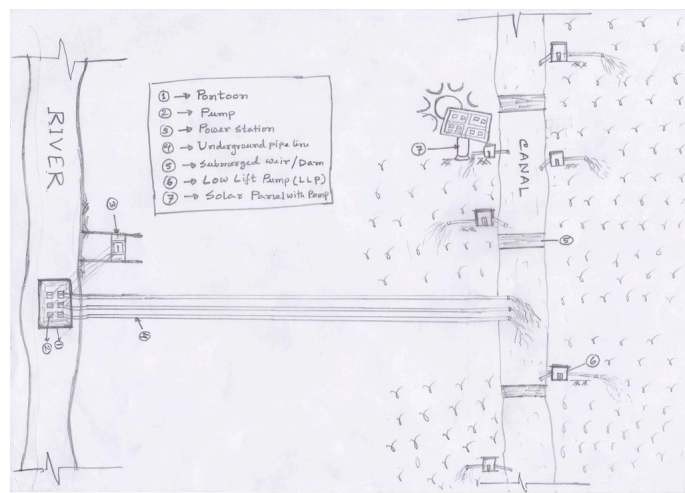 RIVER
① → Pontoon
② → Pump
③ → Power station
④ → Underground pipe line
⑤ → Submerged weir/Dam
⑥ → Low Lift Pump (LLP)
⑦ → Solar Panel with Pump
CANAL
⑦
③
⑤
④
②
①
⑥